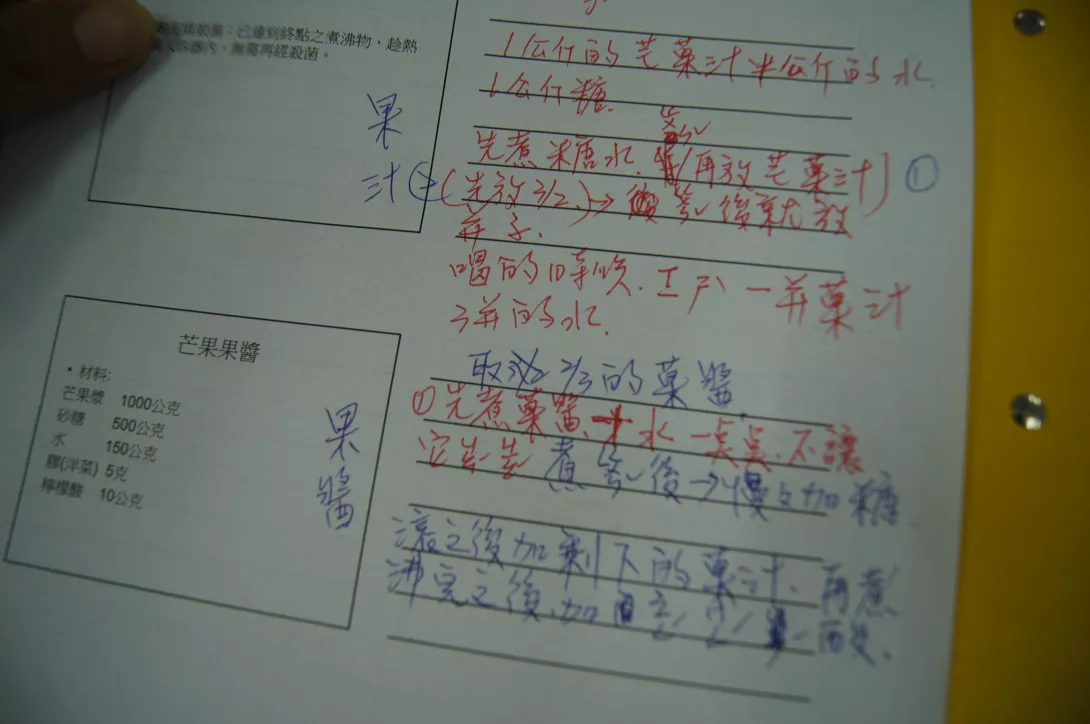 殺菌：已達到終點之煮沸物，趁熱
器內，無需再經殺菌。
果
汁
1公斤的芒菓汁半公斤的水
1公斤糖
先煮糖水 再放芒菓汁) ①
(先放 3/2.)→ 後就放
弃子.
喝的時候. 工戶 一并菓汁
3并的水.
芒果果醬
• 材料:
芒果漿 1000公克
砂糖 500公克
水 150公克
膠(洋菜) 5克
檸檬酸 10公克
果
醬
取 2/3的菓醬.
①先煮菓醬 水 一点点.不讓
它 煮 後→慢々加糖
滾之後加剩下的菓汁. 再煮
沸完之後.加 酸.